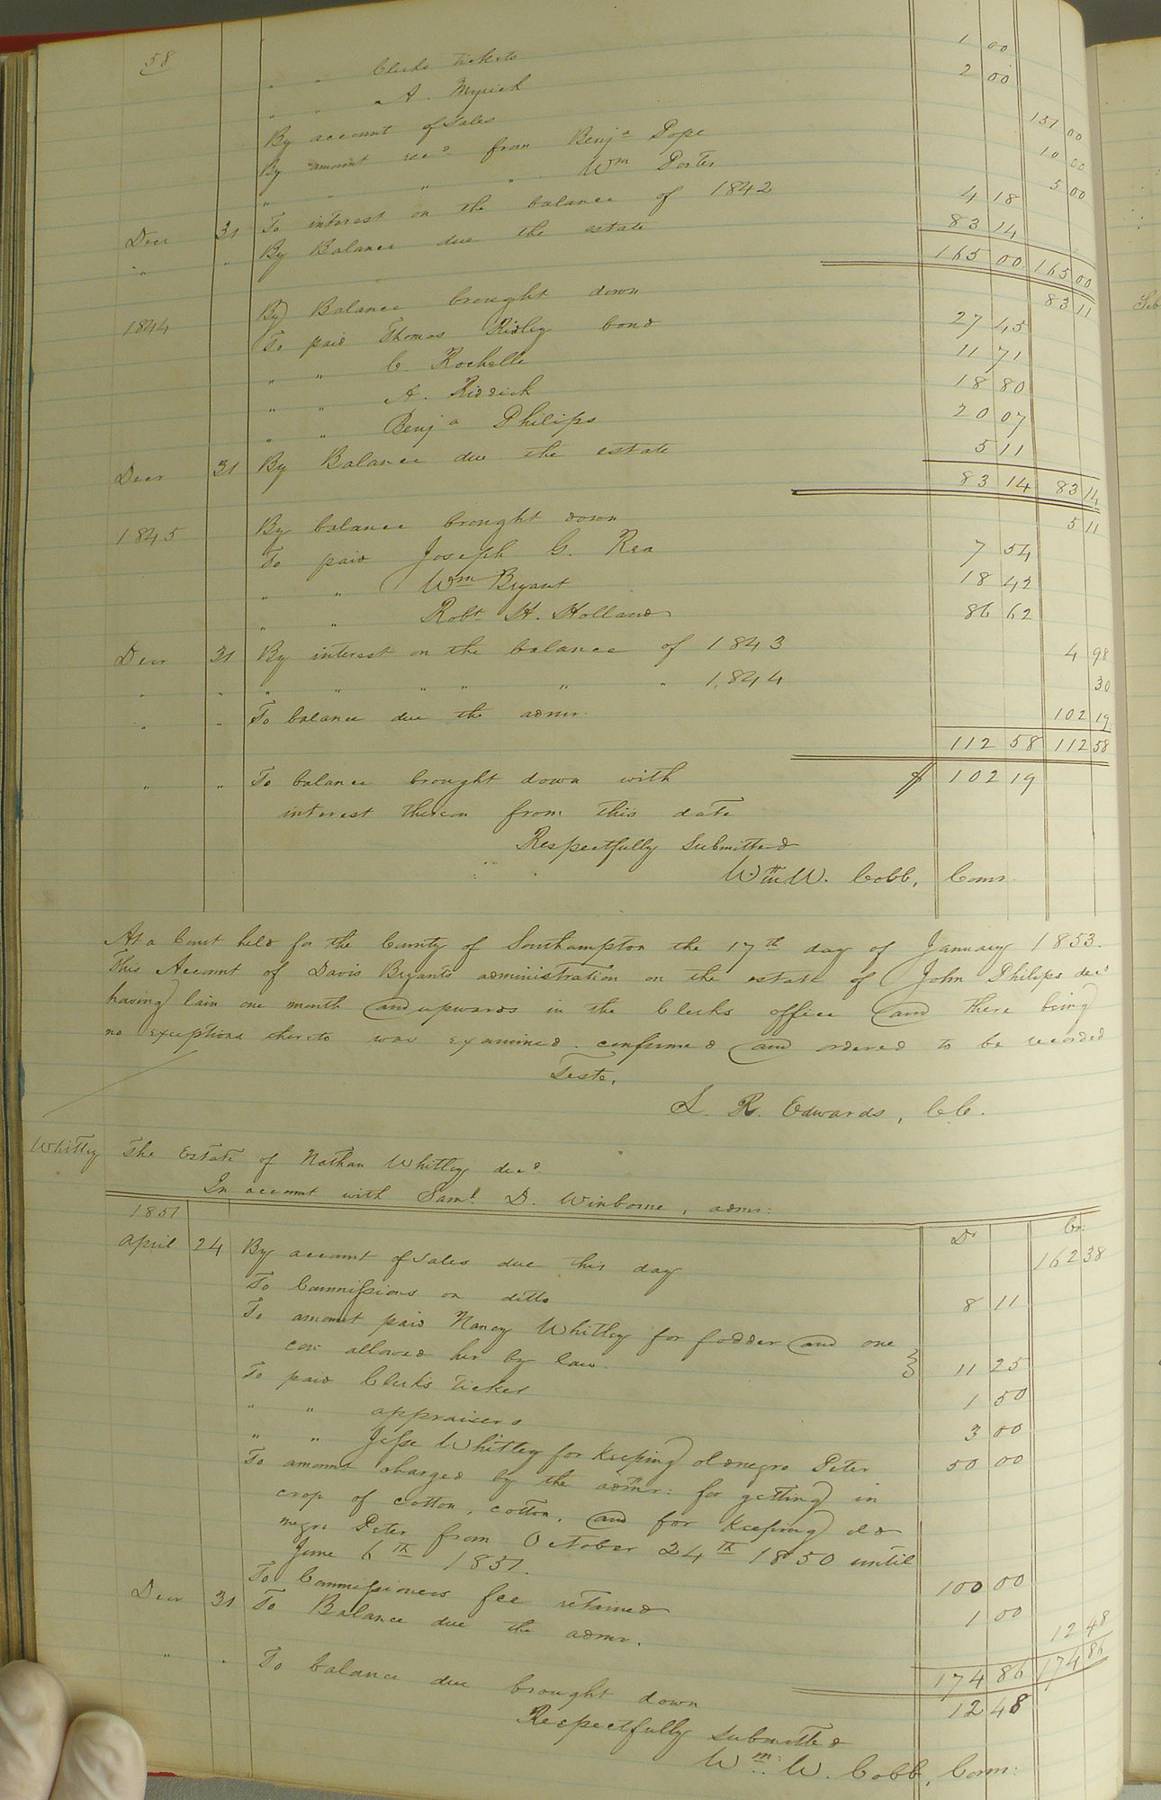 58
" " Clerks tickets 1 00
" " A. Myrick 2 00
By account of Sales 137 00
By amount recd from Benja Pope 10 00
" " " Wm Porter 5 00
Decr 31 To interest on the balance of 1842 4 18
" " By Balance due the estate 83 14
165 00 165 00
1844 By Balance brought down 83 11
To paid Thomas Ridley bond 27 45
" " C. Rochelle 11 71
" " A. Riddick 18 80
" " Benja Philips 20 07
Decr 31 By Balance due the estate 5 11
83 14 83 14
1845 By balance brought down 5 11
To paid Joseph G. Rea 7 54
" " Wm Bryant 18 42
" " Robt H. Holland 86 62
Decr 31 By interest on the balance of 1843 4 98
" " " " " " " " 1844 30
" " To balance due the admr. 102 19
112 58 112 58
" " To balance brought down with $ 102 19
interest thereon from this date
Respectfully Submitted
Wm W. Cobb, Comr.
At a Court held for the County of Southampton the 17th day of January 1853.
This Account of Davis Bryants administration on the estate of John Philips decd
having lain one month and upwards in the Clerks office and there being
no exceptions thereto was examined. confirmed and ordered to be recorded
Teste,
L. R. Edwards, C.C.
Whitley The Estate of Nathan Whitley decd.
In account with Saml. D. Winborne, admr:
1851 Dr Cr.
April 24 By account of Sales due this day 162 38
To Commissions on ditto 8 11
To amount paid Nancy Whitley for fodder and one
cow allowed her by law. 11 25
To paid Clerk's Ticket 1 50
" " appraisers 3 00
" " Jesse Whitley for Keeping old negro Peter 50 00
To amount charged by the admr: for getting in
crop of cotton, cotton, and for Keeping old
negro Peter from October 24th 1850 until
June 6th 1851. 100 00
To Commissioners fee retained 1 00
Decr 31 To Balance due the admr. 12 48
174 86 174 86
" " To balance due brought down 12 48
Respectfully submitted
Wm. W. Cobb, Comr: